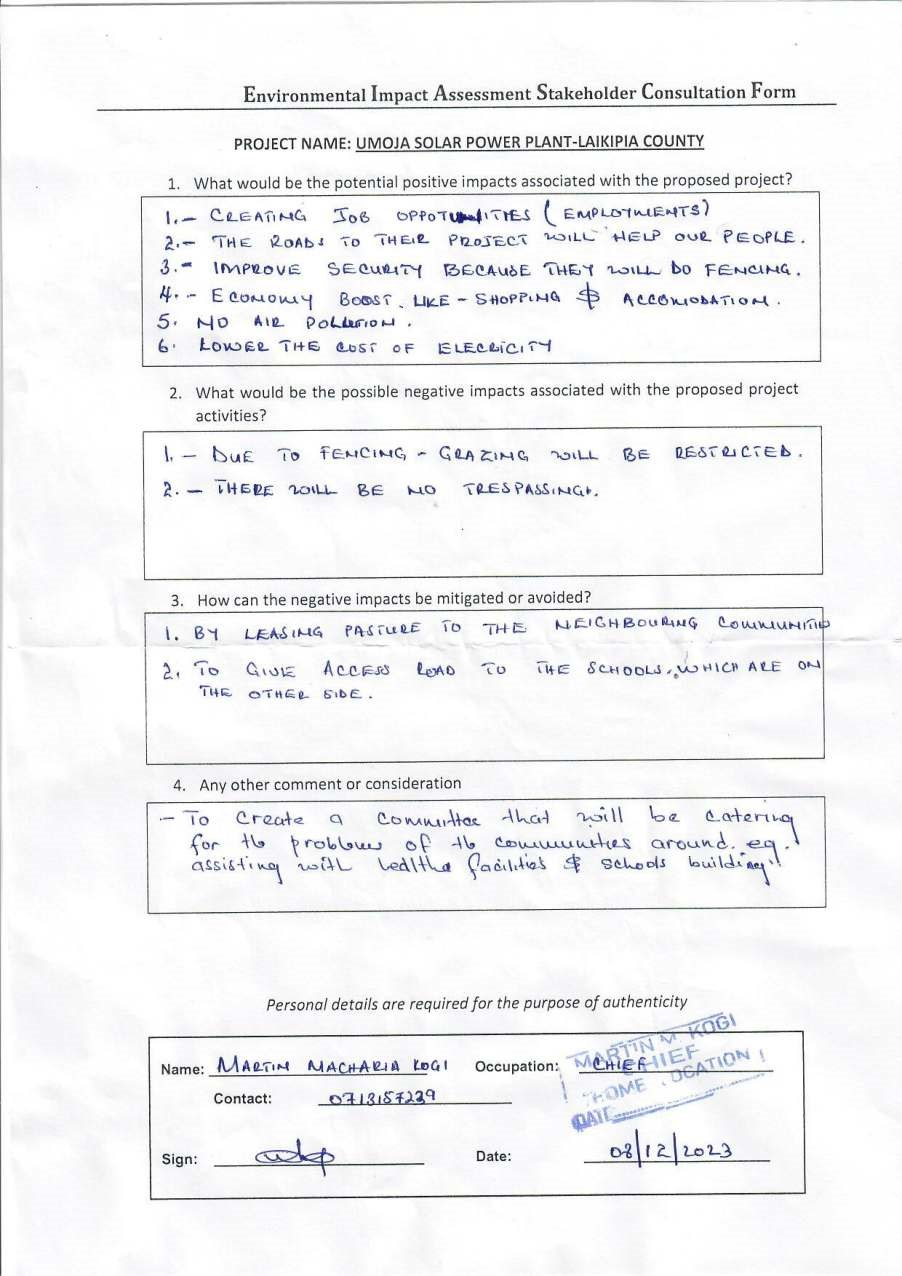 Environmental Impact Assessment Stakeholder Consultation Form
PROJECT NAME: UMOJA SOLAR POWER PLANT-LAIKIPIA COUNTY
1. What would be the potential positive impacts associated with the proposed project?
1.- CREATING JOB OPPOTUNITIES (EMPLOYMENTS)
2.- THE ROADS TO THEIR PROJECT WILL HELP OUR PEOPLE.
3.- IMPROVE SECURITY BECAUSE THEY WILL DO FENCING.
4.- ECONOMY BOOST. LIKE - SHOPPING & ACCOMODATION.
5. NO AIR POLLUTION.
6. LOWER THE COST OF ELECRICITY
2. What would be the possible negative impacts associated with the proposed project
activities?
1. - DUE TO FENCING - GRAZING WILL BE RESTRICTED.
2. - THERE WILL BE NO TRESPASSING.
3. How can the negative impacts be mitigated or avoided?
1. BY LEASING PASTURE TO THE NEIGHBOURING
2. TO GIVE ACCESS ROAD TO THE SCHOOLS, WHICH ARE ON
THE OTHER SIDE.
4. Any other comment or consideration
- To Create a Committee that will be catering
for the problems of the communities around. eg.
assisting with facilities & schools building!!
Personal details are required for the purpose of authenticity
MARTIN M. KOGI
CHIEF
LOCATION
DATE
Name: MARTIN MACHARIA KOGI Occupation: CHIEF
Contact: 0713157239
Sign: Date: 08/12/2023